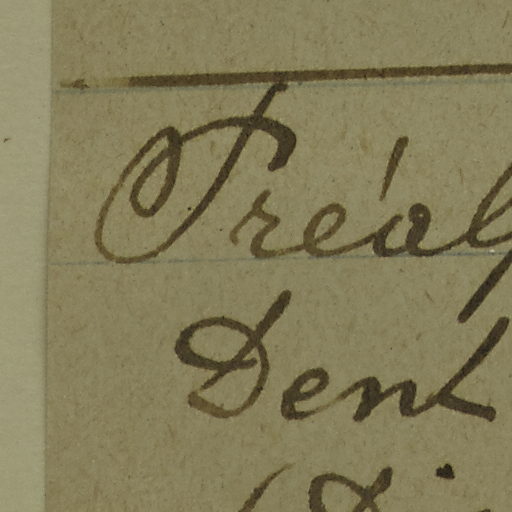 Préal
Dent
(Di